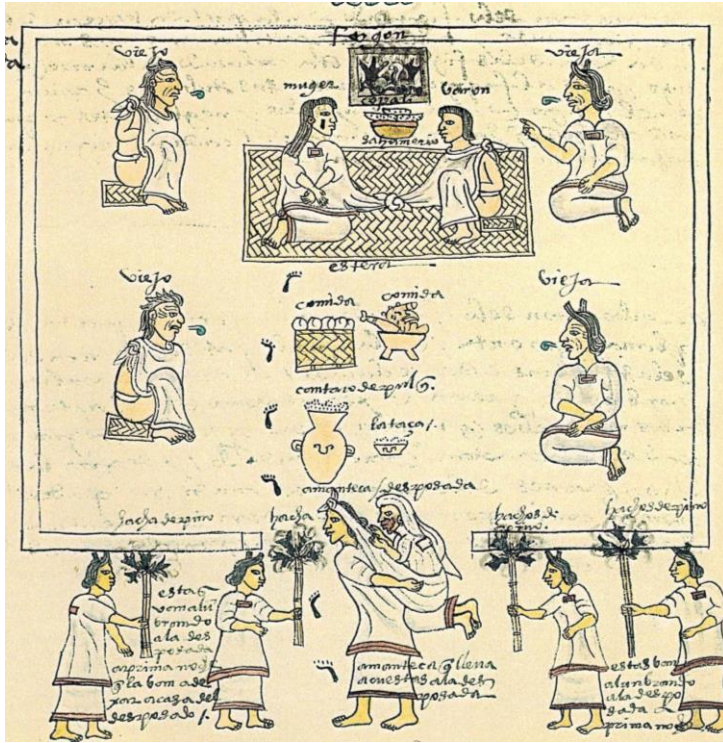 viejo
fogon
vieja
muger
copali
varon
sahumerio
estera
viejo
comida
comida
vieja
cantaro de pulq̃.
la taça /.
amanteca / desposada
hacha de pino
hacha
hachos de pino.
hachos de pino
estas
van alũ
brando
a la des
posada
a prima noche
q̃ la van a de
xar a casa del
desposado /.
amanteca q̃ lleva
a cuestas a la des
posada
estas van
alunbrando
a la despo
sada a
prima noche